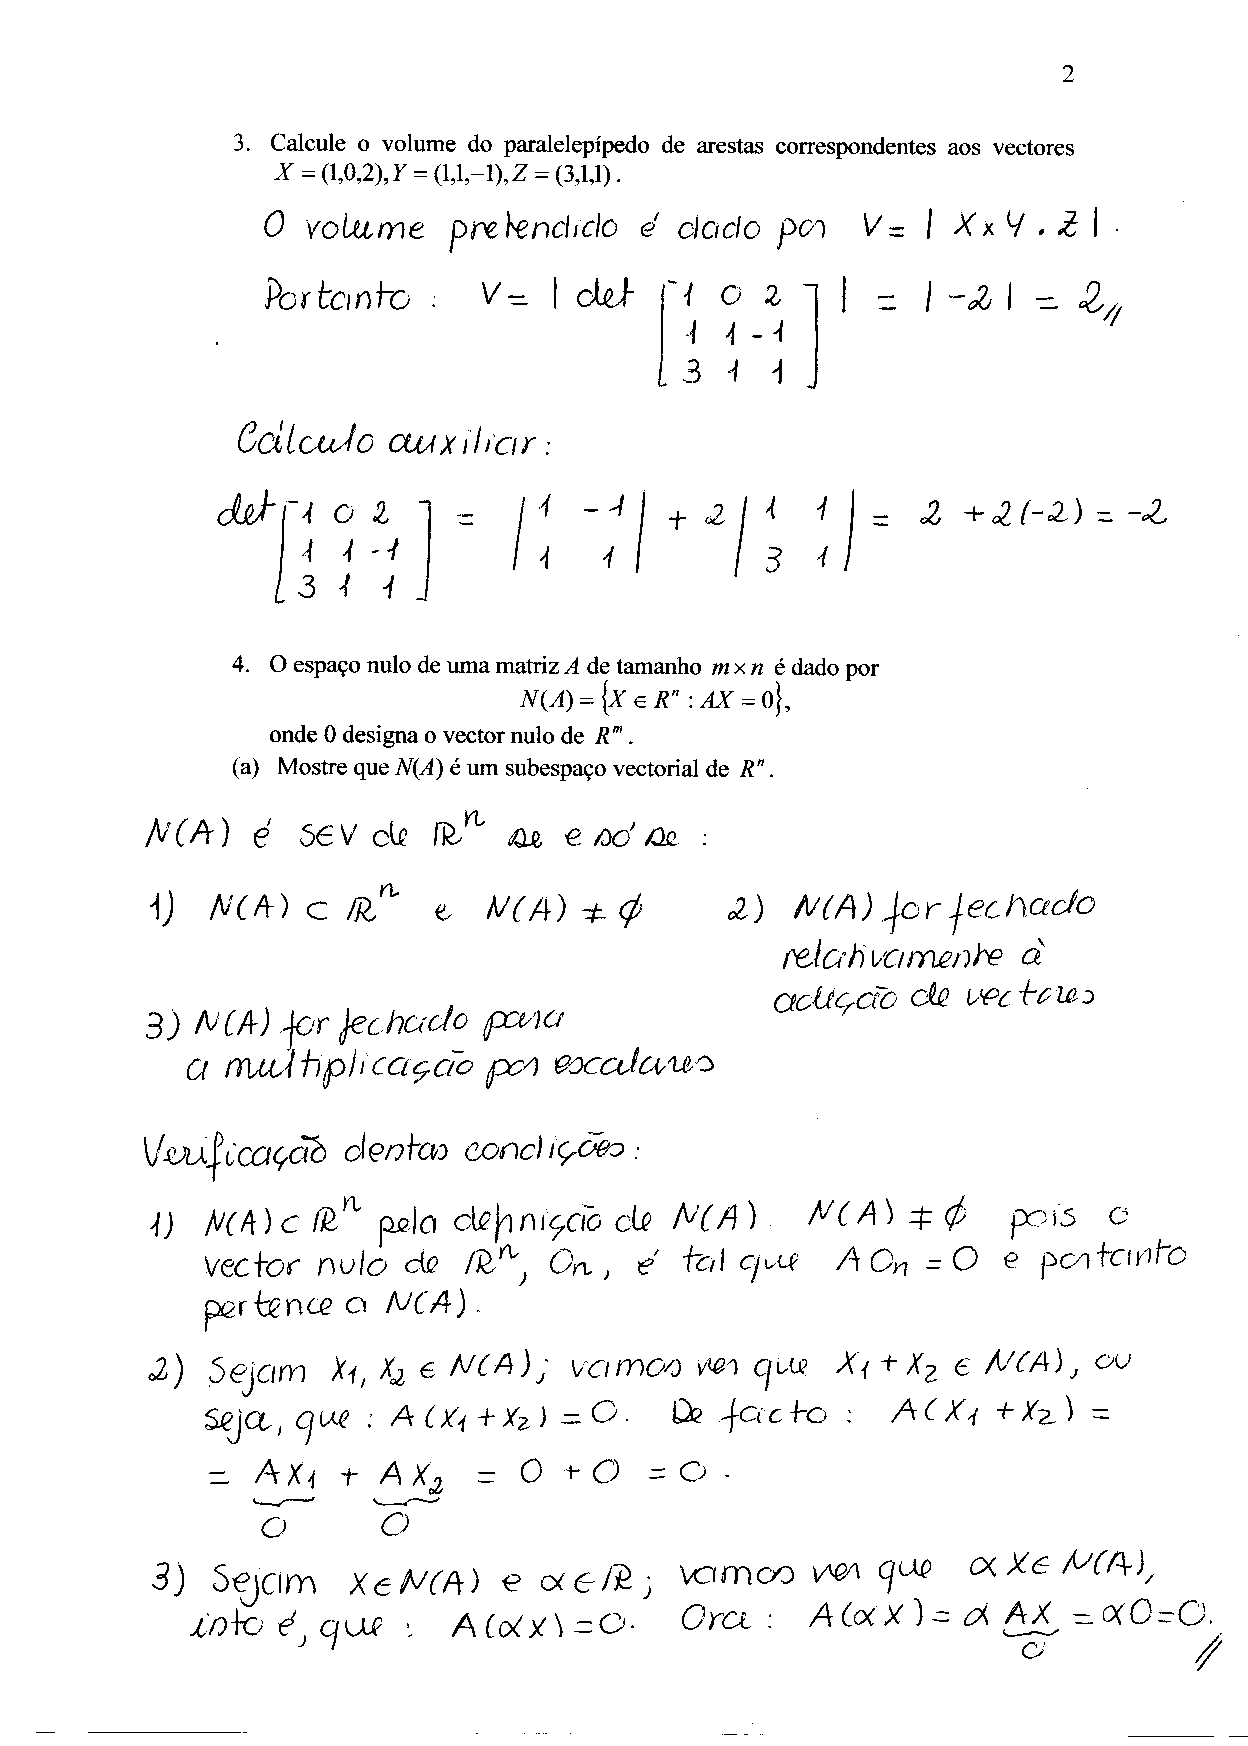 2
3. Calcule o volume do paralelepípedo de arestas correspondentes aos vectores
X = (1,0,2), Y = (1,1,−1), Z = (3,1,1).
O volume pretendido é dado por V = | X × Y . Z | .
Portanto : V = | det [ 1 0 2 ] | = | -2 | = 2 //
1 1 -1
3 1 1
Cálculo auxiliar :
det [ 1 0 2 ] = | 1 -1 | + 2 | 1 1 | = 2 + 2(-2) = -2
1 1 -1 1 1 3 1
3 1 1
4. O espaço nulo de uma matriz A de tamanho m × n é dado por
N(A) = {X ∈ Rⁿ : AX = 0},
onde 0 designa o vector nulo de Rᵐ.
(a) Mostre que N(A) é um subespaço vectorial de Rⁿ.
N(A) é SEV de ℝⁿ se e só se :
1) N(A) ⊂ ℝⁿ e N(A) ≠ ∅ 2) N(A) for fechado
relativamente à
adição de vectores
3) N(A) for fechado para
a multiplicação por escalares
Verificação destas condições :
1) N(A) ⊂ ℝⁿ pela definição de N(A). N(A) ≠ ∅ pois o
vector nulo de ℝⁿ, 0n, é tal que A 0n = 0 e portanto
pertence a N(A).
2) Sejam X₁, X₂ ∈ N(A); vamos ver que X₁ + X₂ ∈ N(A), ou
seja, que : A (X₁ + X₂) = 0. De facto : A(X₁ + X₂) =
= AX₁ + AX₂ = 0 + 0 = 0 .
0 0
3) Sejam X ∈ N(A) e α ∈ ℝ; vamos ver que αX ∈ N(A),
isto é, que : A(αX) = 0. Ora : A(αX) = α AX = α0 = 0.
0 //